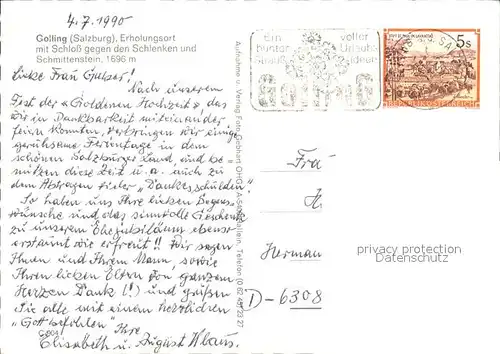 4.7.1990
Golling (Salzburg), Erholungsort
mit Schloß gegen den Schlenken und
Schmittenstein, 1696 m
Liebe Frau
Nach unserem
Fest der "Goldenen Hochzeit", das
wir in Dankbarkeit miteinander
feiern konnten, verbringen wir einige
geruhsame Ferientage in dem
schönen Salzburger Land, und be-
nützen diese Zeit u. a. auch zu
dem Abtragen vieler "Dankesschulden".
So haben uns Ihre lieben Segens-
wünsche und das sinnvolle Geschenk
zu unserem Ehejubiläum eben so
erstaunt wie erfreut!! Wir sagen
Ihnen und Ihrem Mann sowie
Ihren lieben Eltern von ganzem
Herzen Dank (!) und grüßen
Sie alle mit einem herzlichen
"Gott befohlen" Ihre
Elisabeth u. August Klaus.
Aufnahme u. Verlag Foto
Ein voller
bunter Urlaubs-
GOLLING
5 S
REPUBLIK ÖSTERREICH
Fra
H
Herman
D-6308
privacy protection
Datenschutz